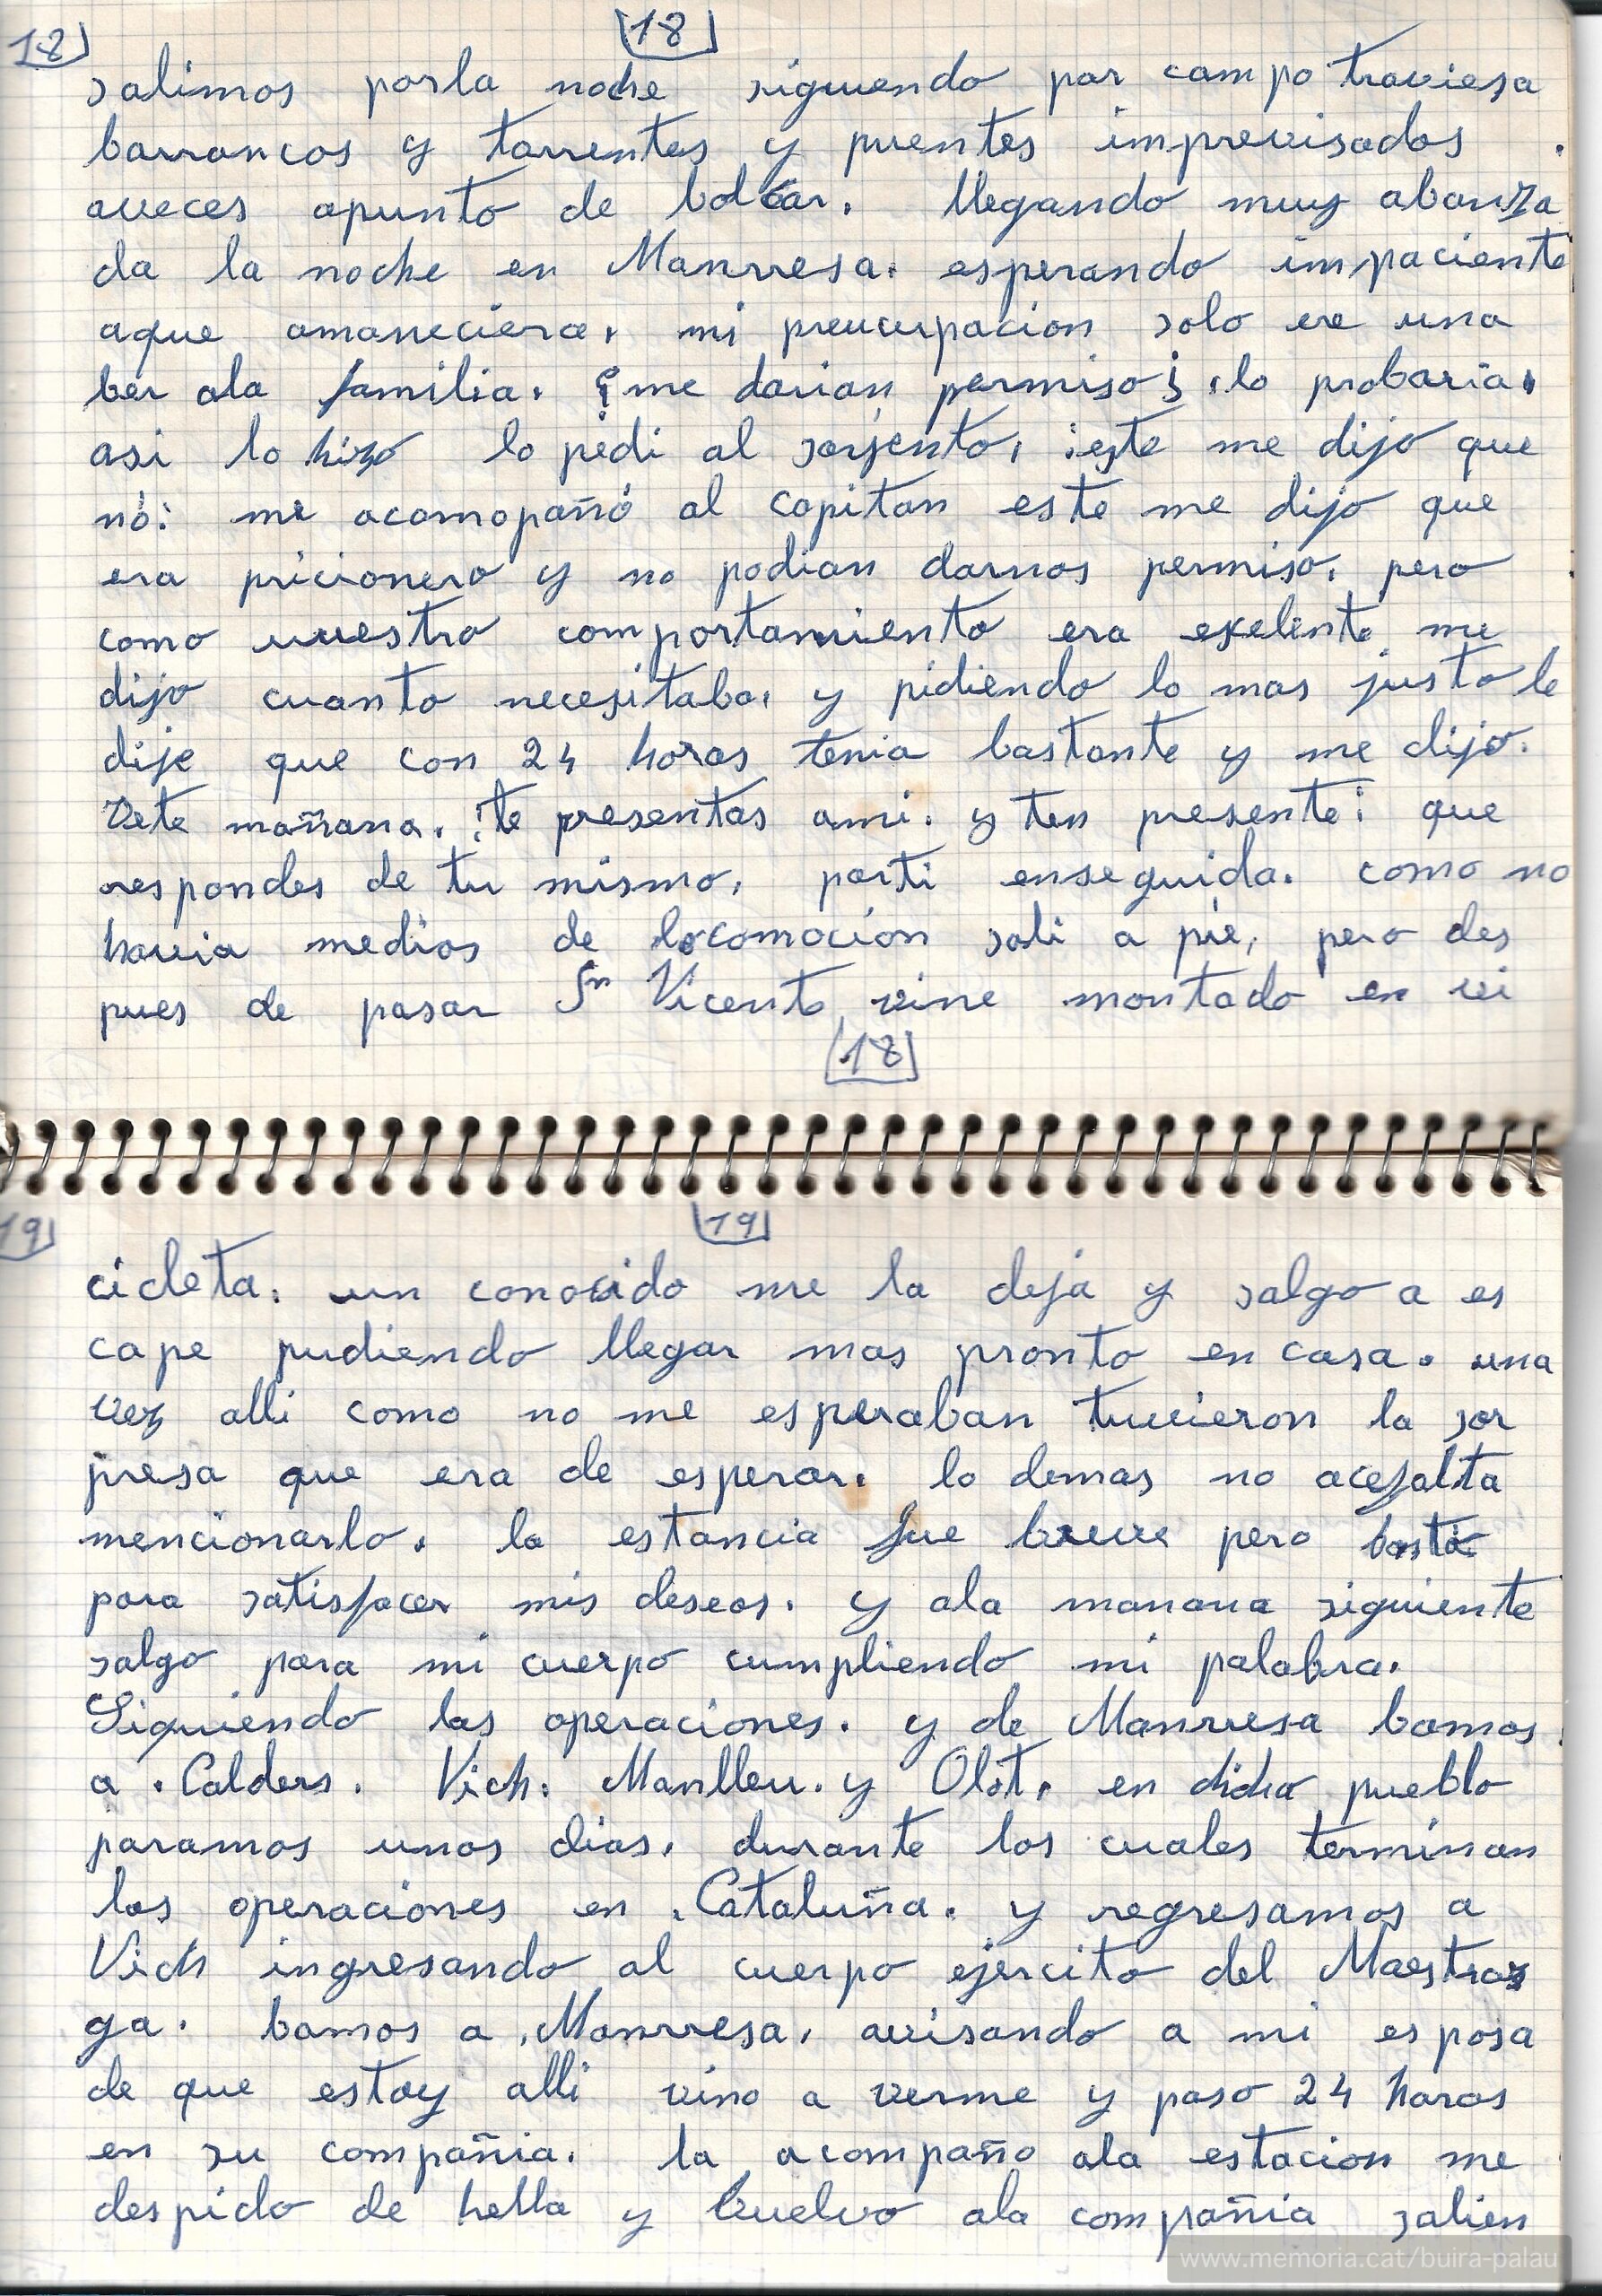 18
18
salimos porla noche siguendo por campo traviesa
barrancos y torrentes y puentes imprevisados .
aveces apunto de bolcar. llegando muy abanza
da la noche en Manrresa. esperando impaciente
aque amaneciera, mi preucupacion solo ere una
ber ala familia. ¿me darian permiso?, lo probaria.
asi lo hizo lo pedi al sarjento, este me dijo que
nó: me acomopañó al capitan este me dijo que
era pricionero y no podian darnos permiso, pero
como nuestro comportamiento era exelente me
dijo cuanto necesitaba, y pidiendo lo mas justo le
dije que con 24 horas tenia bastante y me dijo.
Vete mañana. ¡te presentas ami. y ten presente: que
respondes de tu mismo, parti enseguida. como no
havia medios de locomocion sali a pie, pero des
pues de pasar Sn Vicente vine montado en vi
18
19
19
cicleta. un conocido me la deja y salgo a es
cape pudiendo llegar mas pronto en casa. una
vez alli como no me esperaban tuvieron la sor
presa que era de esperar. lo demas no acefalta
mencionarlo. la estancia fue breve pero bastó
para satisfacer mis deseos. y ala manana siguiente
salgo para mi cuerpo cumpliendo mi palabra.
Siguiendo las operaciones. y de Manrresa bamos
a . Calders. Vich. Manlleu. y Olot. en dicho pueblo
paramos unos dias, durante los cuales terminan
las operaciones en . Cataluña. y regresamos a
Vich ingresando al cuerpo ejercito del Maestraz
go. bamos a . Manrresa, avisando a mi esposa
de que estoy alli vino a verme y paso 24 horas
en su compañia. la acompaño ala estacion me
despido de hella y buelvo ala compañia salien
www.memoria.cat/buira-palau